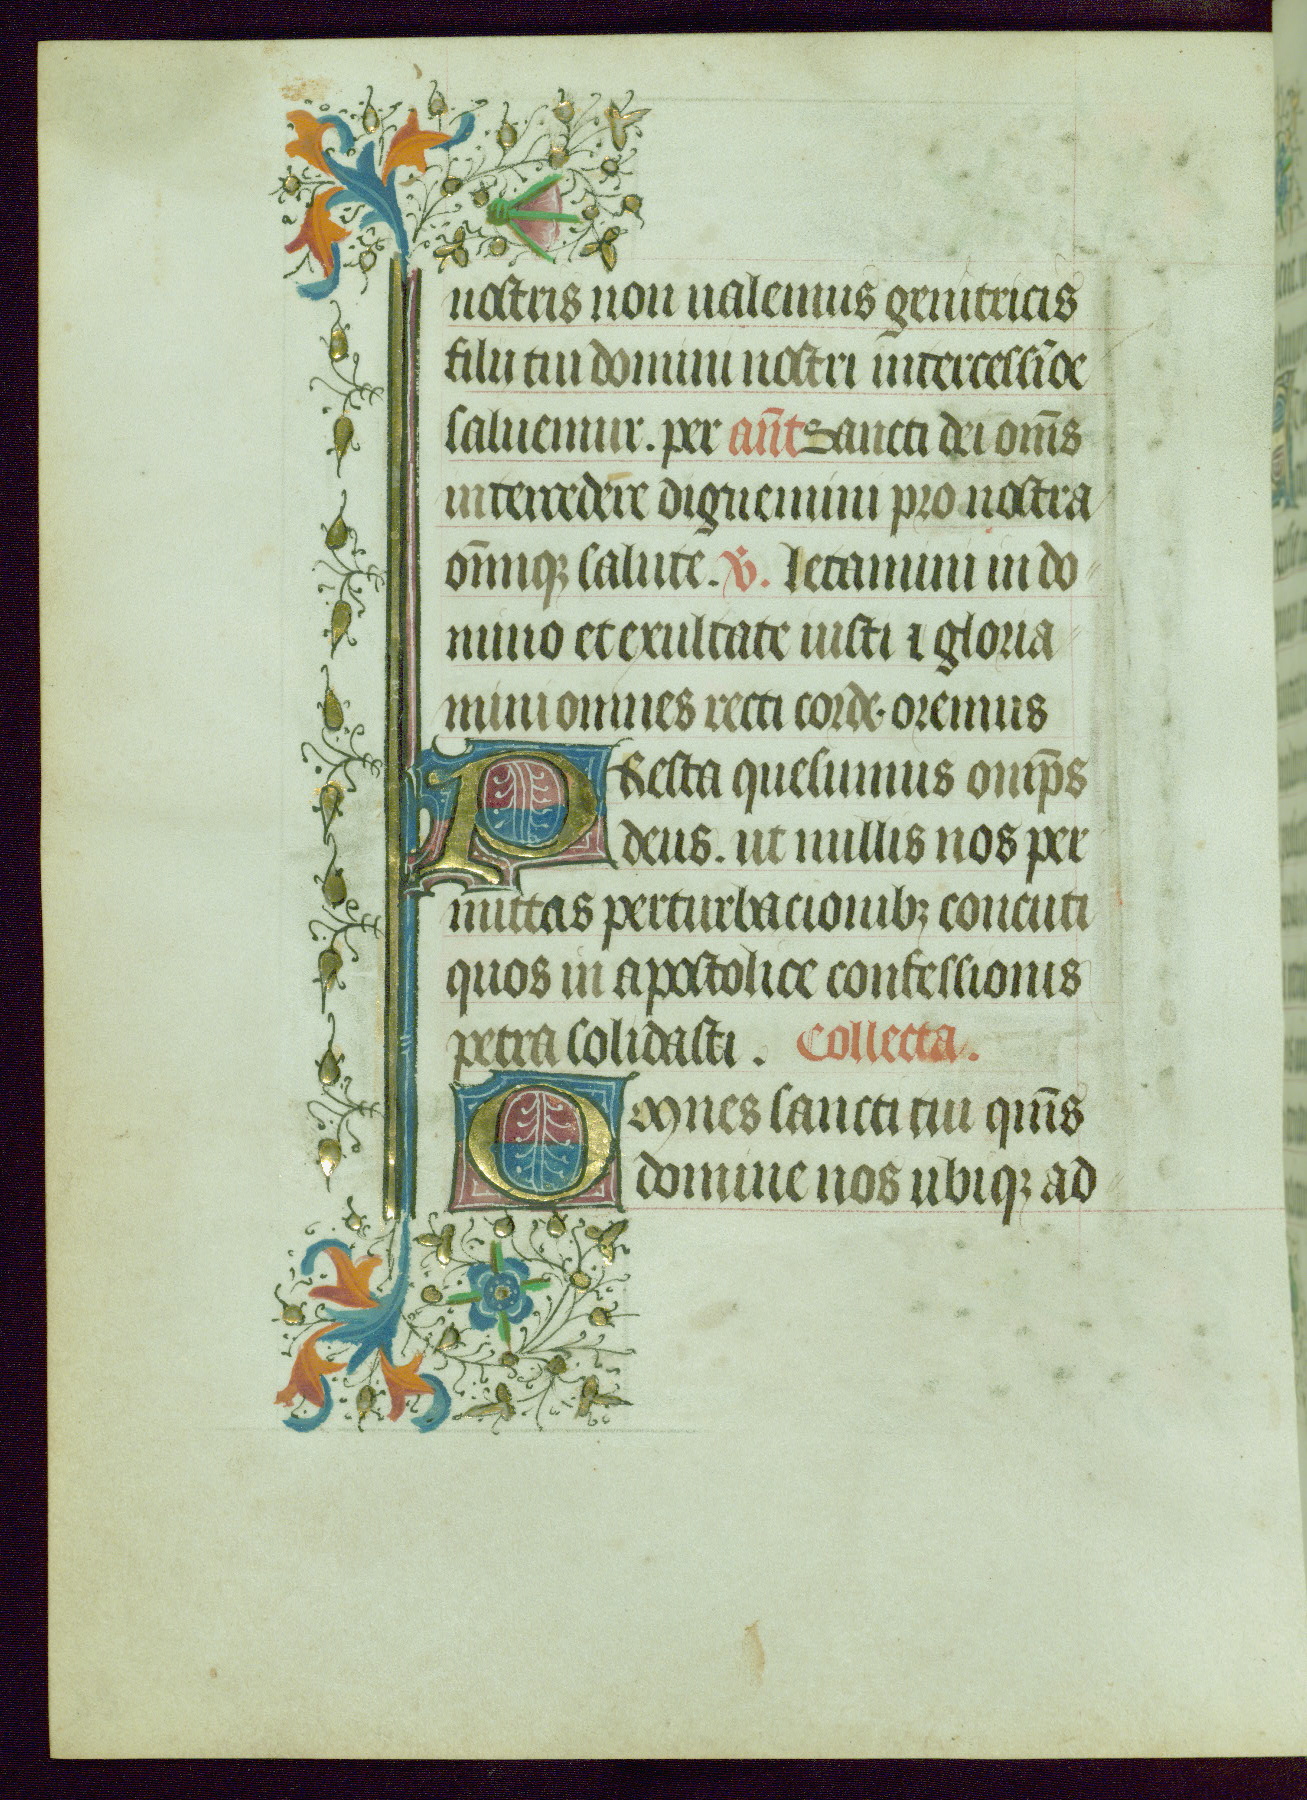 nostris non ualemus genitricis
filii tui domini nostri intercessiōe
saluemur. per an̄t Sancti dei om̄s
intercedēre dignemini pro nostra
om̄niq; salute. v̄. letamini in do
mino et exultate iusti ⁊ gloria
mini omnes recti corde. oremus
PResta quesumus omp̄s
deus. ut nullis nos per
mittas perturbacionib; concuti
quos in apostolice confessionis
petra solidasti. Collecta.
OMnes sancti tui qum̄s
domine nos ubiq; ad